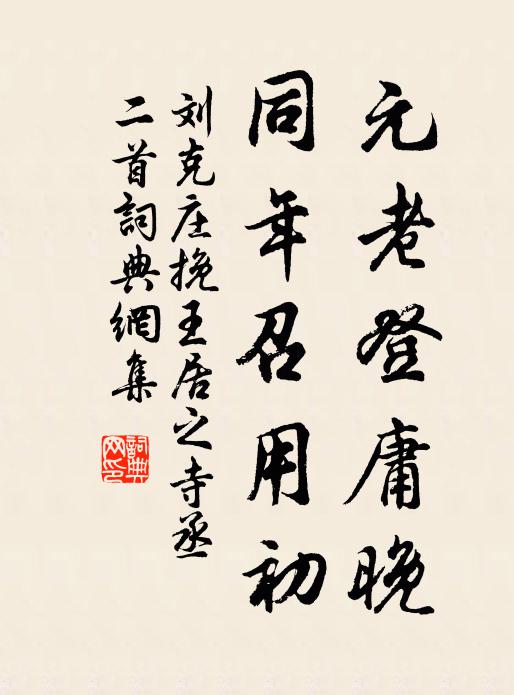 元老登庸晚
同年召用初
刘克庄挽王居之寺丞
二首詞典網集
詞典
网印